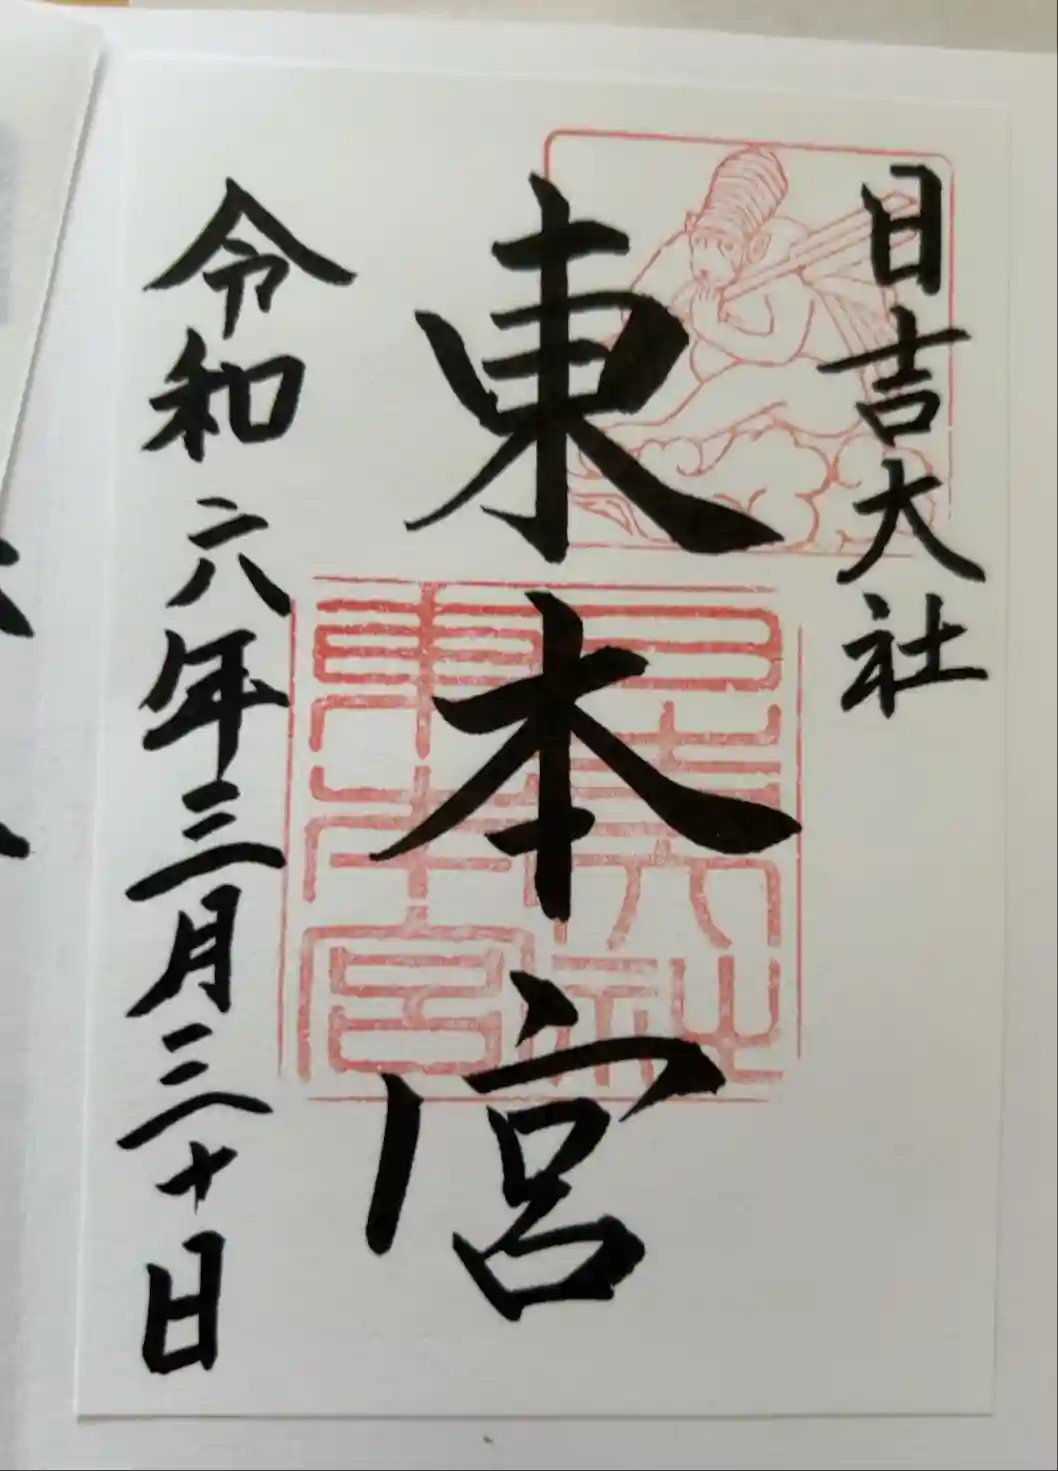 日吉大社
東本宮
令和六年三月三十日
日吉大社
東本宮